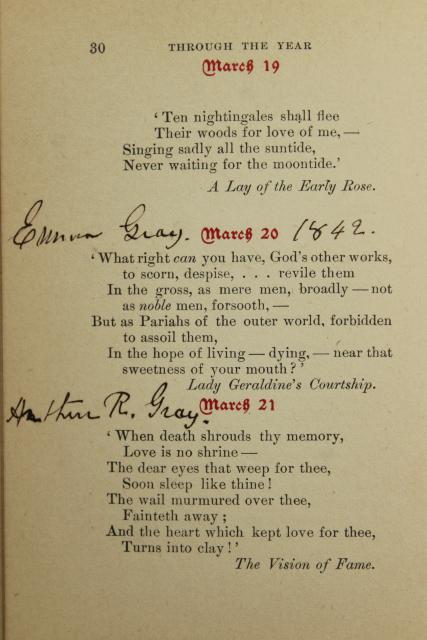 30 THROUGH THE YEAR
March 19
‘ Ten nightingales shall flee
Their woods for love of me, —
Singing sadly all the suntide,
Never waiting for the moontide.’
A Lay of the Early Rose.
Emma Gray. March 20 1842.
‘ What right can you have, God's other works,
to scorn, despise, . . . revile them
In the gross, as mere men, broadly — not
as noble men, forsooth, —
But as Pariahs of the outer world, forbidden
to assoil them,
In the hope of living — dying, — near that
sweetness of your mouth ? ’
Lady Geraldine's Courtship.
March 21
R. Gray.
‘ When death shrouds thy memory,
Love is no shrine —
The dear eyes that weep for thee,
Soon sleep like thine !
The wail murmured over thee,
Fainteth away ;
And the heart which kept love for thee,
Turns into clay ! ’
The Vision of Fame.